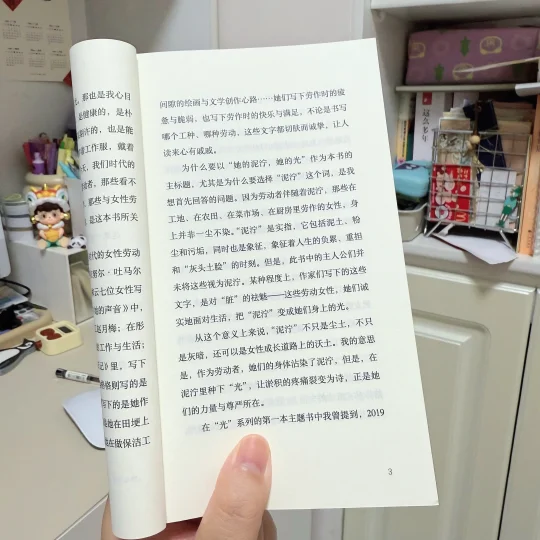 那也是我心目
是健康的，是朴
也是能
工作服，戴着
我们时代的
那些看不
与女性劳
是这本书所关
代的女性劳动
塞尔·吐马尔
云七位女性写
的声音》中，
赵月梅；在形
工作与生活；
记》里，写下
格则写的是
写下的是她作
是她在田埂上
在做保洁工
间隙的绘画与文学创作心路……她们写下劳作时的疲
惫与脆弱，也写下劳作时的快乐与满足。不论是书写
哪个工种、哪种劳动，这些文字都切肤而诚挚，让人
读来心有戚戚。
为什么要以“她的泥泞，她的光”作为本书的
主标题，尤其是为什么要选择“泥泞”这个词，是我
想首先回答的问题。因为劳动者伴随着泥泞，那些在
工地、在农田、在菜市场、在厨房里劳作的女性，身
上并非一尘不染。“泥泞”是实指，它包括泥土、粉
尘和污垢，同时也是象征，象征着人生的负累、重担
和“灰头土脸”的时刻。但是，此书中的主人公们并
未将这些视为泥泞。某种程度上，作家们写下的这些
文字，是对“脏”的祛魅——这些劳动女性，她们诚
实地面对生活，把“泥泞”变成她们身上的光。
从这个意义上来说，“泥泞”不只是尘土，不只
是灰暗，还可以是女性成长道路上的沃土。我的意思
是，作为劳动者，她们的身体沾染了泥泞，但是，在
泥泞里种下“光”，让淤积的疼痛裂变为诗，正是她
们的力量与尊严所在。
在“光”系列的第一本主题书中我曾提到，2019
3
这么多年